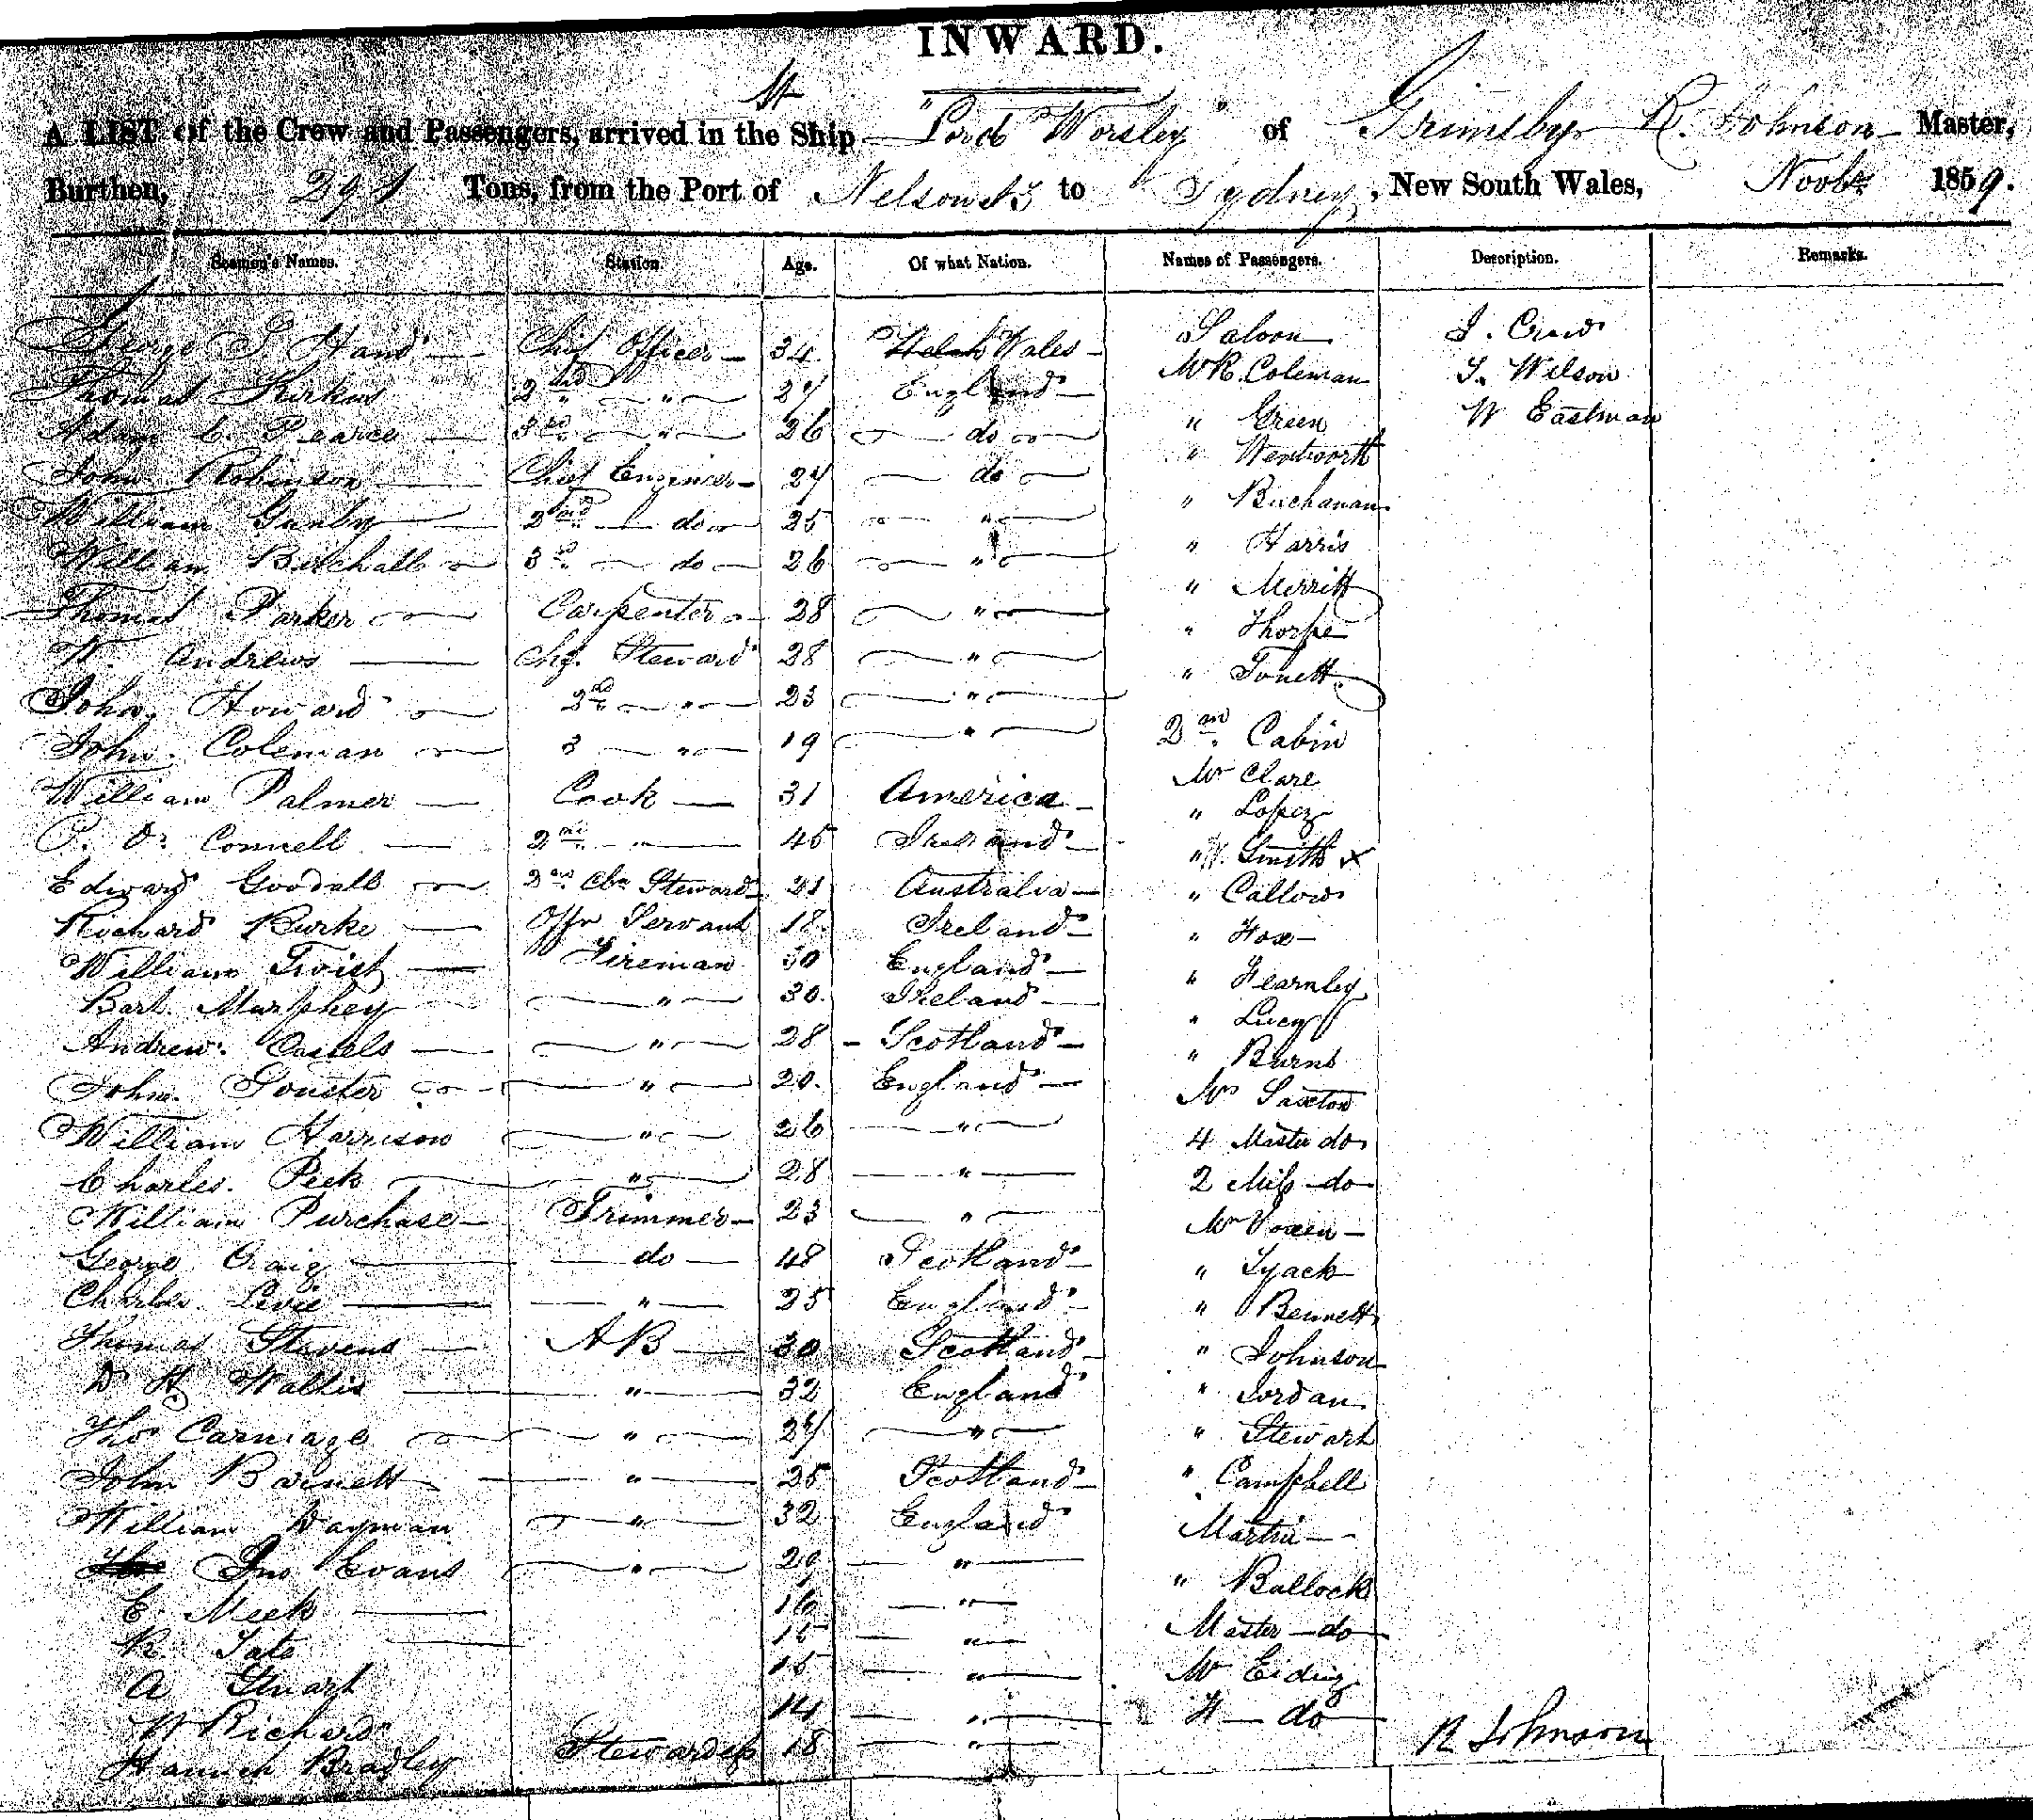 INWARD.
St
A LIST of the Crew and Passengers, arrived in the Ship "Lord Worsley" of Grimsby R. Johnson Master,
Burthen, 291 Tons, from the Port of Nelson to Sydney, New South Wales, 1859.
Seamen's Names. Station. Age. Of what Nation. Names of Passengers. Description. Remarks.
George Hand Chief Officer 34 Wales Saloon
Thomas Kirkus 2nd " 27 England Mr R. Coleman J. Wilson
Adam C. Pearce 3rd " 26 do " Green W Eastman
John Robinson Chief Engineer 27 do " Wentworth
William Gunby 2nd do 25 " " Buchanan
William Birchall 3rd do 26 " " Harris
Thomas Parker Carpenter 28 " " Merritt
W. Andrews Chf. Steward 28 " " Thorpe
John Howard 2nd " 23 "
John Coleman 3 " 19 " 2nd Cabin
William Palmer Cook 31 America Mr Clare
P. O. Connell 2nd " 45 Ireland " Lopez
Edward Goodall 2nd Cbn Steward 21 Australia " W. Smith x
Richard Burke Offr Servant 18 Ireland " Callow
William Twist Fireman 30 England " Fox
Bart. Murphey " 30 Ireland " Fearnley
Andrew Cassels " 28 Scotland " Lucy
John Gouster " 20 England " Burns
William Harrison " 26 " Mrs Saxton
Charles Peek " 28 " 4 Master do
William Purchase Trimmer 23 " 2 Miss do
George Craig do 48 Scotland Mr
Charles " 25 England " Tyack
Thomas Stevens AB 30 Scotland " Bennett
D H Wallis " 32 England " Johnson
Thos " 24 " " Jordan
John Barnett " 25 Scotland " Stewart
William Wayman " 32 England " Campbell
Jno Evans " 29 " Martin
E. Meek 16 " " Bullock
R. Tate 15 " Master do
A Stuart 15 " Mr
W Richard 14 " do
Hannah Bradley Stewardess 18 " R Johnson